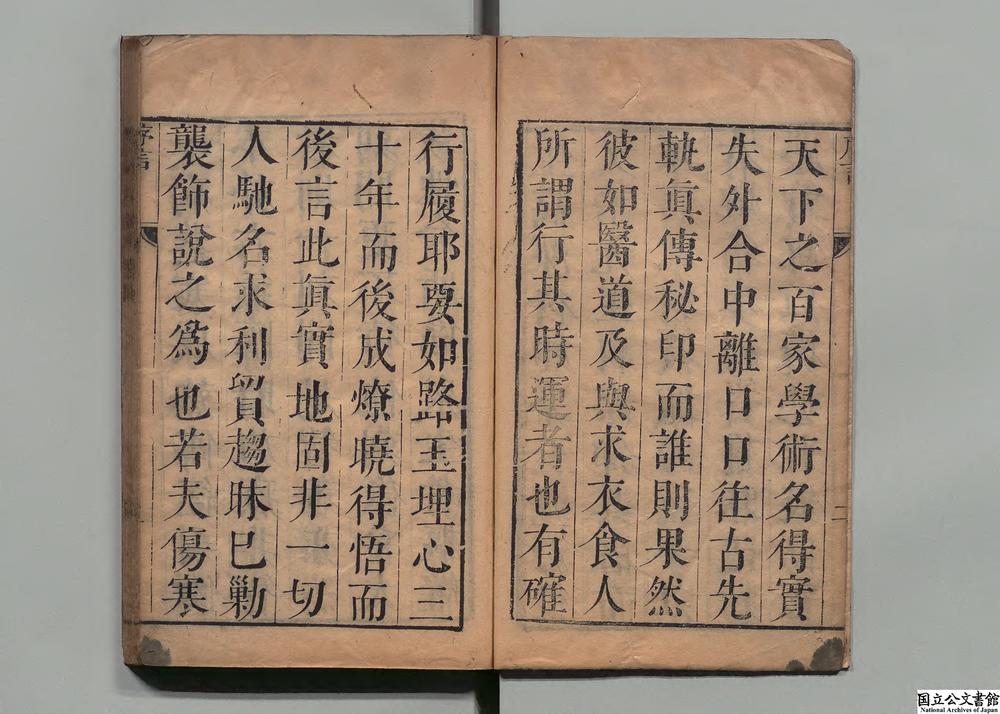 天下之百家學術名得實
失外合中離口口往古先
軌眞傳秘印而誰則果然
彼如醫道及與求衣食人
所謂行其時運者也有確
行履耶要如路玉埋心三
十年而後成燎曉得悟而
後言此眞實地固非一切
人馳名求利貿趨昧巳勦
襲飾說之爲也若夫傷寒
序言
国立公文書館
National Archives of Japan